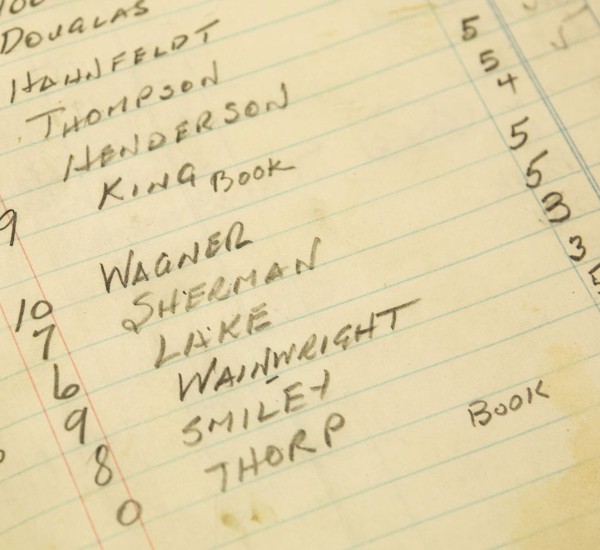 DOUGLAS
HAHNFELDT
THOMPSON 5
HENDERSON 5
9 KING BOOK 4
10 WAGNER 5
7 SHERMAN 5
6 LAKE 3
9 WAINWRIGHT 3
8 SMILEY
0 THORP BOOK